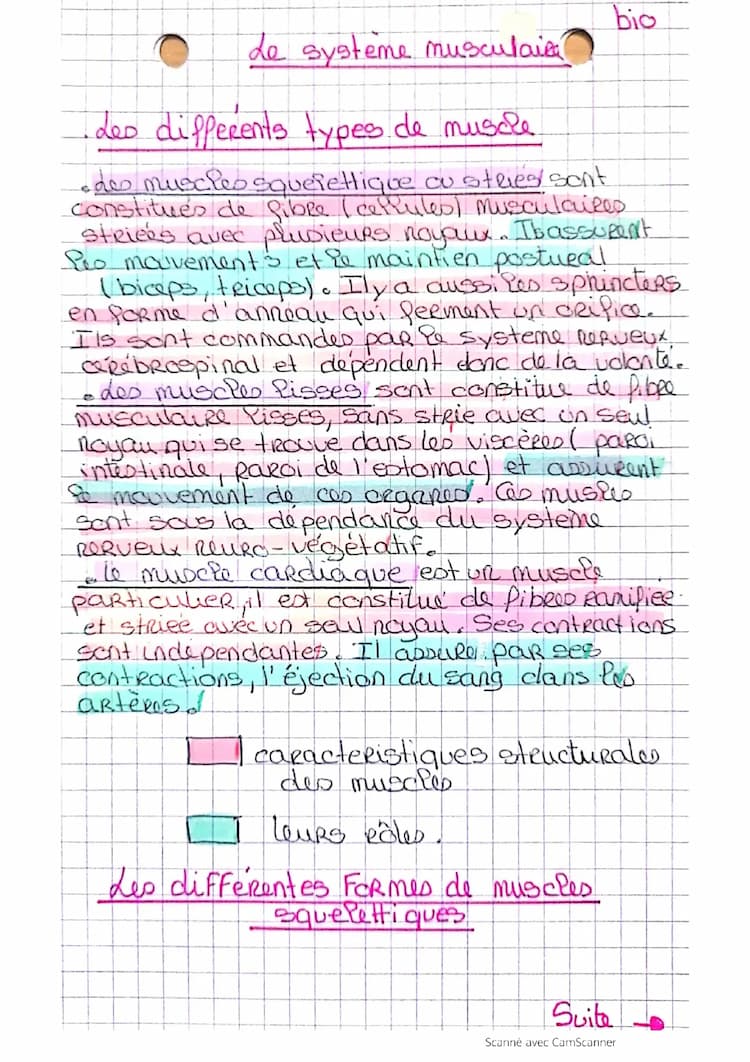 bio
Le système musculaire
. Les différents types de muscle
. Les muscles squelettique ou striés sont
constitués de fibre (cellules) musculaires
striées avec plusieurs noyaux. Ils assurent
les mouvements et le maintien postural
(biceps, triceps). Il y a aussi les sphincters
en forme d'anneau qui ferment un orifice.
Ils sont commandés par le système nerveux
cérébrospinal et dépendent donc de la volonté.
. Les muscles lisses sont constitué de fibre
musculaire lisses, sans strie avec un seul
noyau qui se trouve dans les viscères (paroi
intestinale, paroi de l'estomac) et assurent
le mouvement de ces organes. Ces muscles
sont sous la dépendance du système
nerveux neuro-végétatif.
. Le muscle cardiaque est un muscle
particulier, il est constitué de fibres ramifiée
et striée avec un seul noyau. Ses contractions
sont indépendantes. Il assure par ses
contractions, l'éjection du sang dans les
artères.
caracteristiques structurales
des muscles
leurs rôles.
Les différentes formes de muscles
squelettiques
Suite →
Scanné avec CamScanner